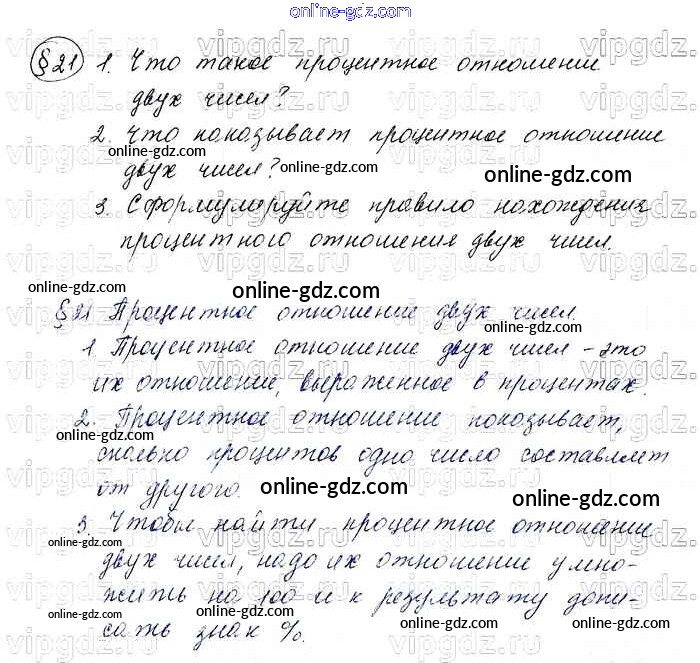 online-gdz.com
§21 1. Что такое процентное отношение
двух чисел?
2. Что показывает процентное отношение
online-gdz.com
двух чисел? online-gdz.com
3. Сформулируйте правило нахождения
процентного отношения двух чисел.
online-gdz.com
online-gdz.com
§21 Процентное отношение двух чисел.
online-gdz.com
1 Процентное отношение двух чисел – это
их отношение, выраженное в процентах.
online-gdz.com
2. Процентное отношение показывает,
online-gdz.com
сколько процентов одно число составляет
от другого. online-gdz.com
online-gdz.com
3. Чтобы найти процентное отношение
online-gdz.com
двух чисел, надо их отношение умно-
жить на 100 и к результату допи-
online-gdz.com
сать знак %. online-gdz.com